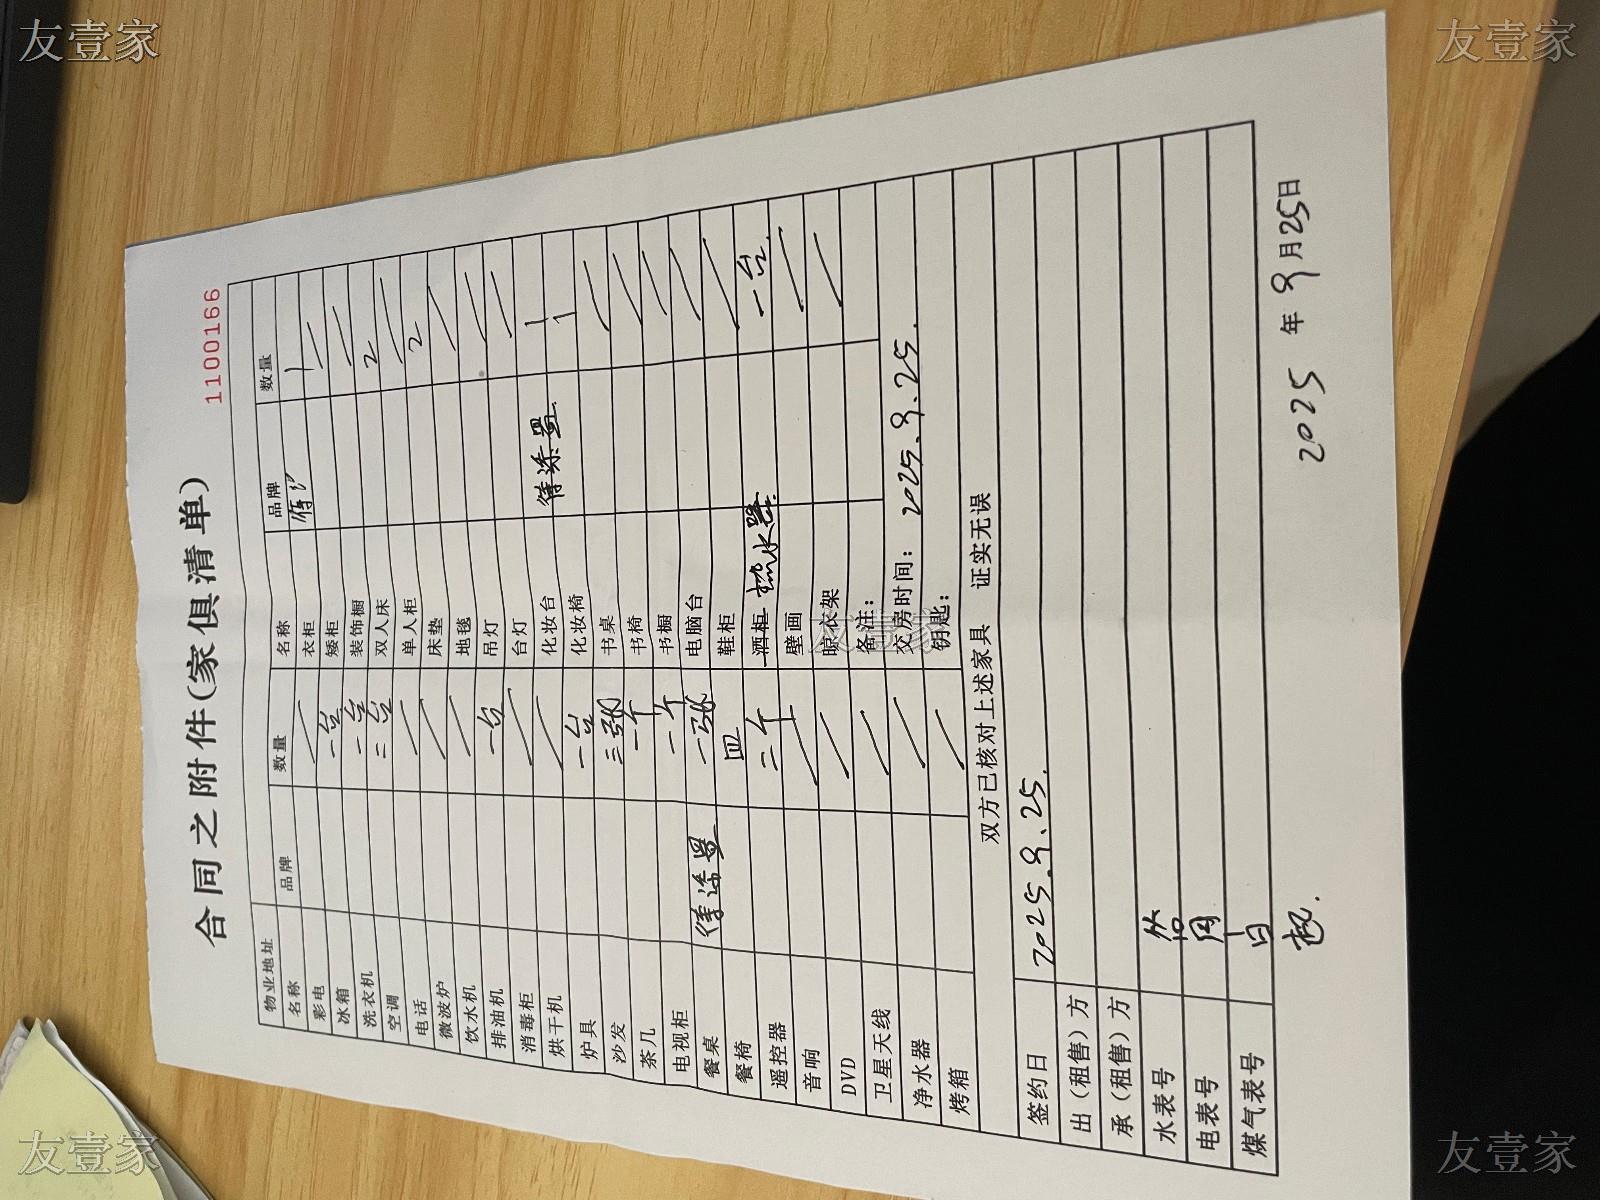 1100166
合同之附件(家俱清单)
物业地址
名称 品牌 数量 名称 品牌 数量
彩电 / 衣柜 1
冰箱 一台 矮柜 /
洗衣机 一台 装饰橱 /
空调 二台 双人床 2
电话 / 单人柜 /
微波炉 / 床垫 2
饮水机 / 地毯 /
排油机 一台 吊灯 /
消毒柜 / 台灯 /
烘干机 / 化妆台 待添置 1
炉具 一台 化妆椅 1
沙发 三张 书桌 /
茶几 一个 书椅 /
电视柜 一个 书橱 /
餐桌 待添置 一张 电脑台 /
餐椅 四 鞋柜 /
遥控器 二个 酒柜 热水器 一台
音响 / 壁画 /
DVD / 晾衣架 /
卫星天线 / 备注:
净水器 / 交房时间: 2025.9.25.
烤箱 / 钥匙:
双方已核对上述家具 证实无误
签约日 2025.9.25.
出(租售)方
承(租售)方
水表号
电表号
煤气表号
2025 年 9 月 25 日
友壹家
友壹家
友壹家
友壹家
友壹家